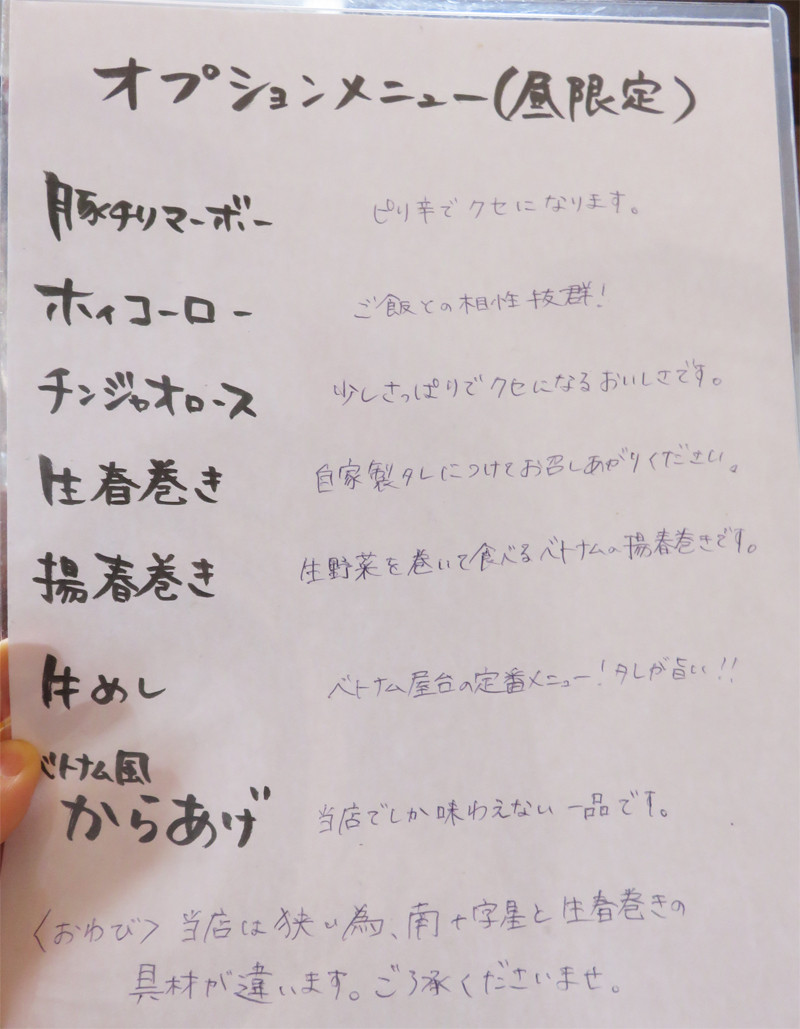 オプションメニュー(昼限定)
豚チリマーボー ピリ辛でクセになります。
ホイコーロー ご飯との相性抜群!
チンジャオロース 少しさっぱりでクセになるおいしさです。
生春巻き 自家製タレにつけてお召しあがりください。
揚春巻き 生野菜を巻いて食べるベトナムの揚春巻きです。
牛めし ベトナム屋台の定番メニュー!タレが旨い!!
ベトナム風
からあげ 当店でしか味わえない一品です。
〈おわび〉当店は狭い為、南十字星と生春巻きの
具材が違います。ご了承くださいませ。